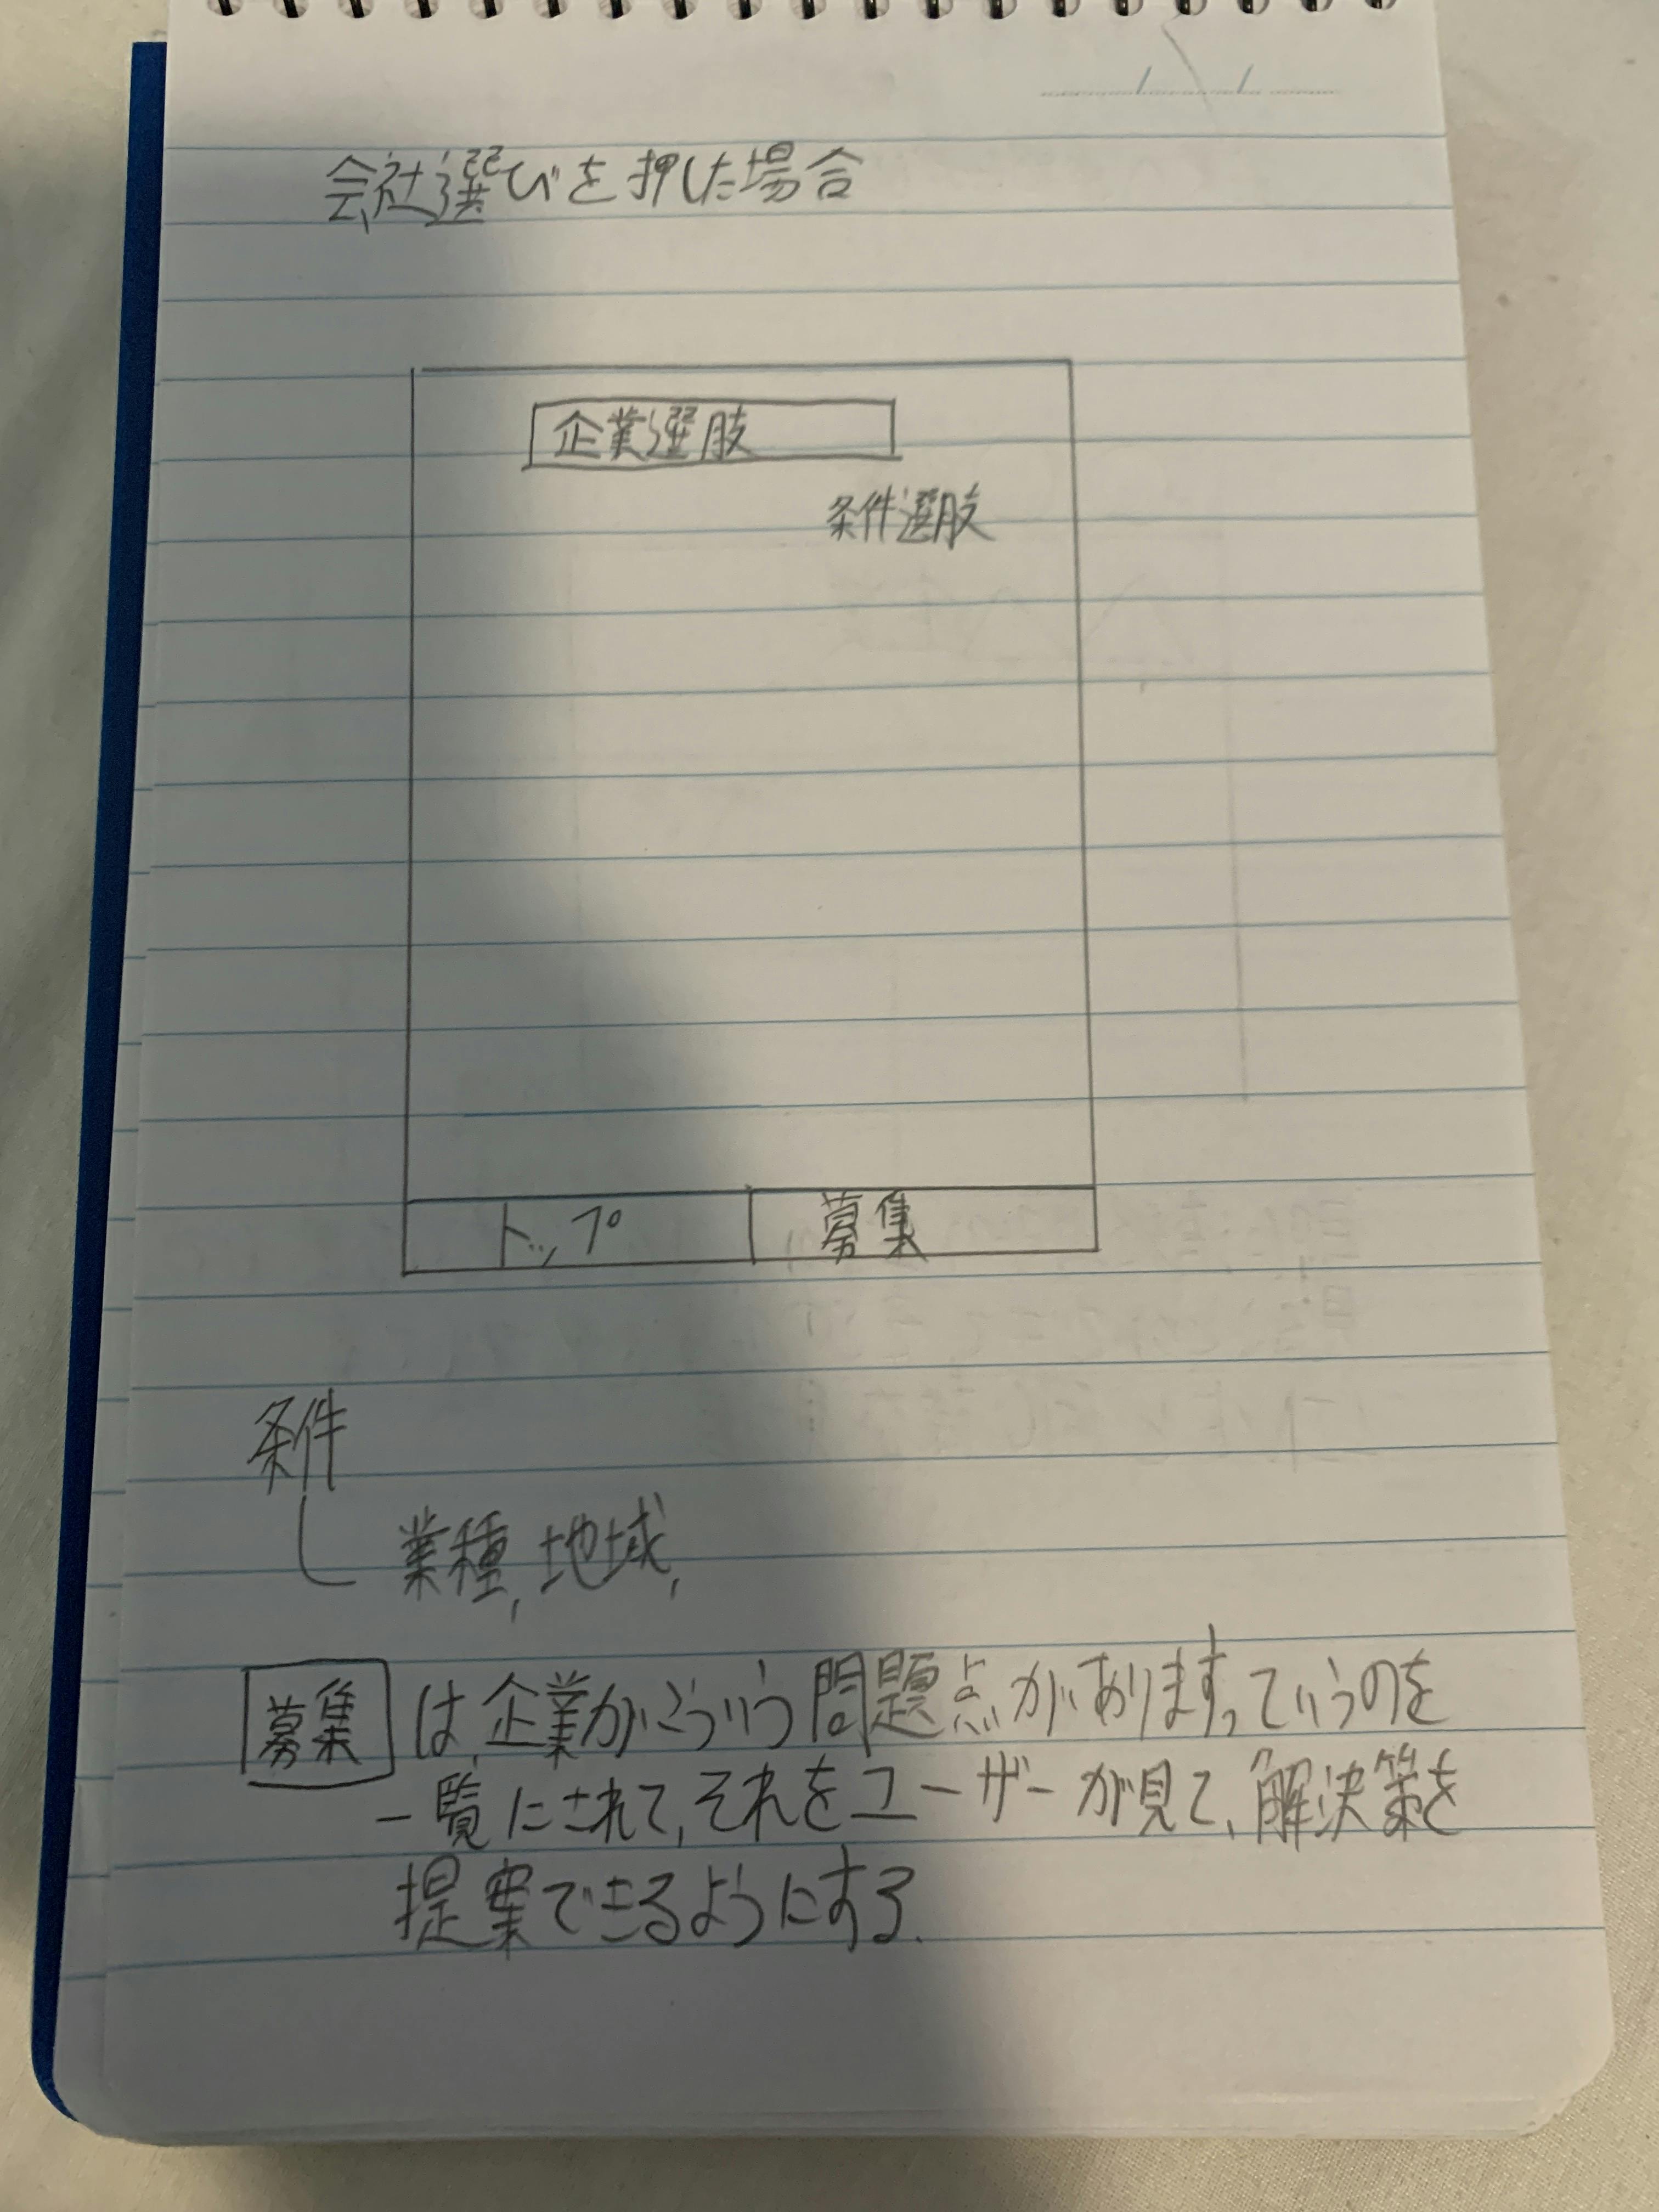 会社選びを押した場合
企業選肢
条件選肢
トップ
募集
条件
業種, 地域,
募集 は、企業がこういう問題点がありますっていうのを
一覧にされて、それをユーザーが見て、解決策を
提案できるようにする.